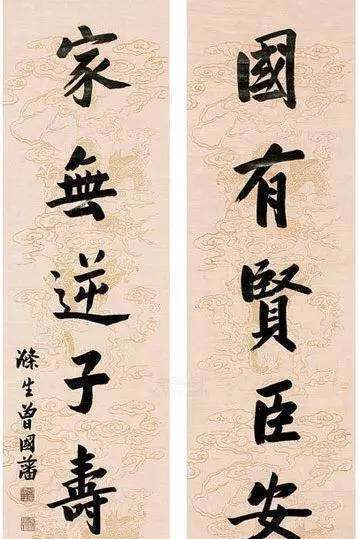 國有賢臣安
家無逆子壽
滌生曾國藩